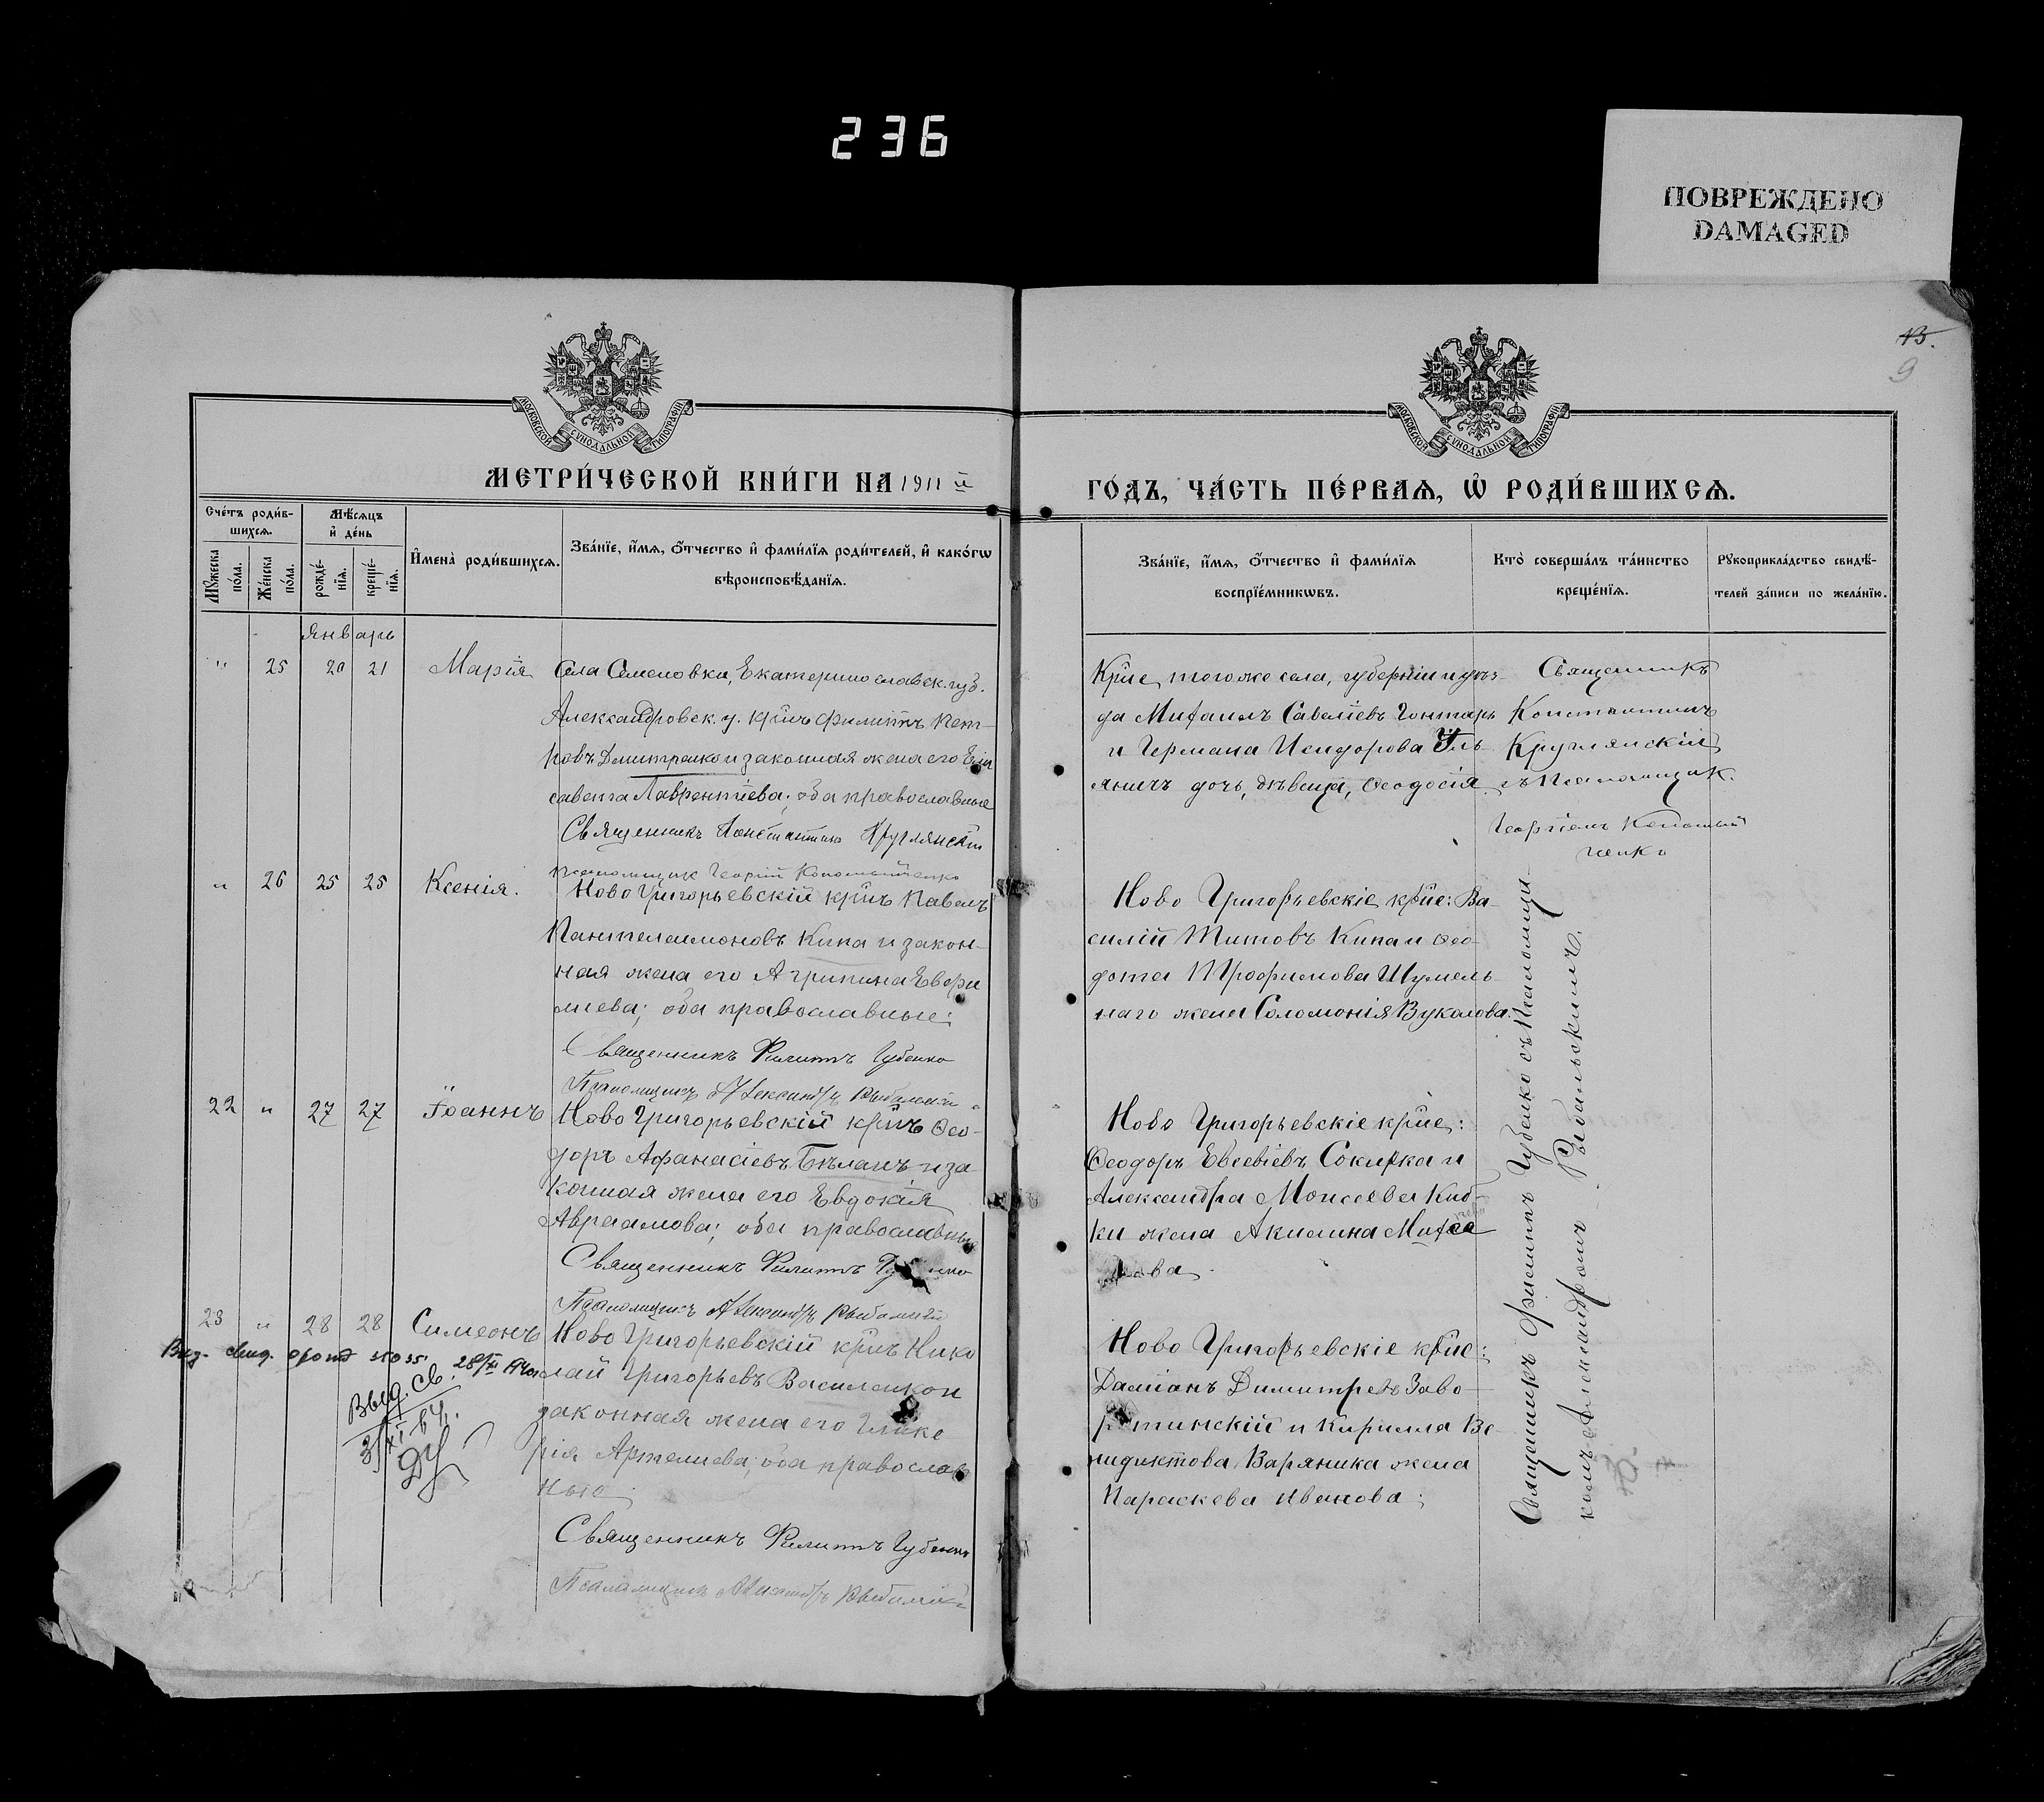 236
ПОВРЕЖДЕНО
DAMAGED
13.
9
МОСКОВСКОЙ СѴНОДАЛЬНОЙ ТИПОГРАФІИ
МОСКОВСКОЙ СѴНОДАЛЬНОЙ ТИПОГРАФІИ
МЕТРИ́ЧЕСКОЙ КНИ́ГИ НА 1911 й
ГО́ДЪ, ЧА́СТЬ ПЕ́РВАЯ, Ѡ҆ РОДИ́ВШИХСЯ.
Сче́тъ роди́в-
шихся.
Мѣ́сяцъ
и҆ де́нь
Мꙋ́жеска по́ла.
Же́нска по́ла.
рожде́-
нїя.
креще́-
нїя.
И҆мена̀ роди́вшихся.
Зва́нїе, и҆́мя, о҆́тчество и҆ фами́лїя роди́телей, и҆ како́гѡ
вѣроисповѣ́данїя.
Зва́нїе, и҆́мя, о҆́тчество и҆ фами́лїя
воспрїе́мникѡвъ.
Кто̀ соверша́лъ та́инство
креще́нїя.
Рꙋкоприкла́дство свидѣ́-
телей за́писи по жела́нїю.
Январь
" 25 20 21 Марія
Села Семеновки, Екатеринославск. губ.
Александровск. у. кр̃нъ Филиппъ Пет-
ровъ Дмитренко и законная жена его Ели
савета Лаврентіева; оба православные
Священникъ Константинъ Круглянскій
псаломщик Георгій Коломыйченко
Кр̃не того же села, губерніи и уѣз-
да Михаилъ Савеліевъ Гонтарь
и Германа Исидорова Уль-
яничъ дочь, дѣвица, Ѳеодосія.
Священникъ
Константинъ
Круглянскій
съ псаломщик.
Георгіемъ Коломый
ченко
" 26 25 25 Ксенія.
Ново Григорьевскій кр̃нъ Павелъ
Пантелеимоновъ Кипа и закон-
ная жена его Агрипина Евфи
міева; оба православные:
Священникъ Филиппъ Губенко
Псаломщикъ Александръ Рыбальскій
Ново Григорьевскіе кр̃не: Ва-
силій Титовъ Кипа и Ѳео-
дота Трофимова Шумель-
наго жена Соломонія Вуколова.
22 " 27 27 Іоаннъ
Ново Григорьевскій кр̃нъ Ѳео-
доръ Афанасіевъ Бѣланъ и за
конная жена его Евдокія
Авраамова; оба православные
Священникъ Филиппъ
Псаломщикъ Александръ Рыбальскій
Ново Григорьевскіе кр̃не:
Ѳеодоръ Евсевіевъ Сокирка и
Александра Моисеева Киб-
ки жена Акилина Михаи
лова
23 " 28 28 Симеонъ
Ново Григорьевскій кр̃нъ Нико
лай Григорьевъ Василенко и
законная жена его Глике
рія Артемиева; оба православ
ные
Священникъ Филиппъ Губенко
Псаломщикъ Александръ Рыбальскій
Ново Григорьевскіе кр̃не:
Даміанъ Димитріевъ Заво-
ротинскій и Кирилла Ве-
недиктова Вареника жена
Параскева Иванова;
Священникъ Филиппъ Губенко съ псаломщи-
комъ Александромъ Рыбальскимъ.
Выд. св.